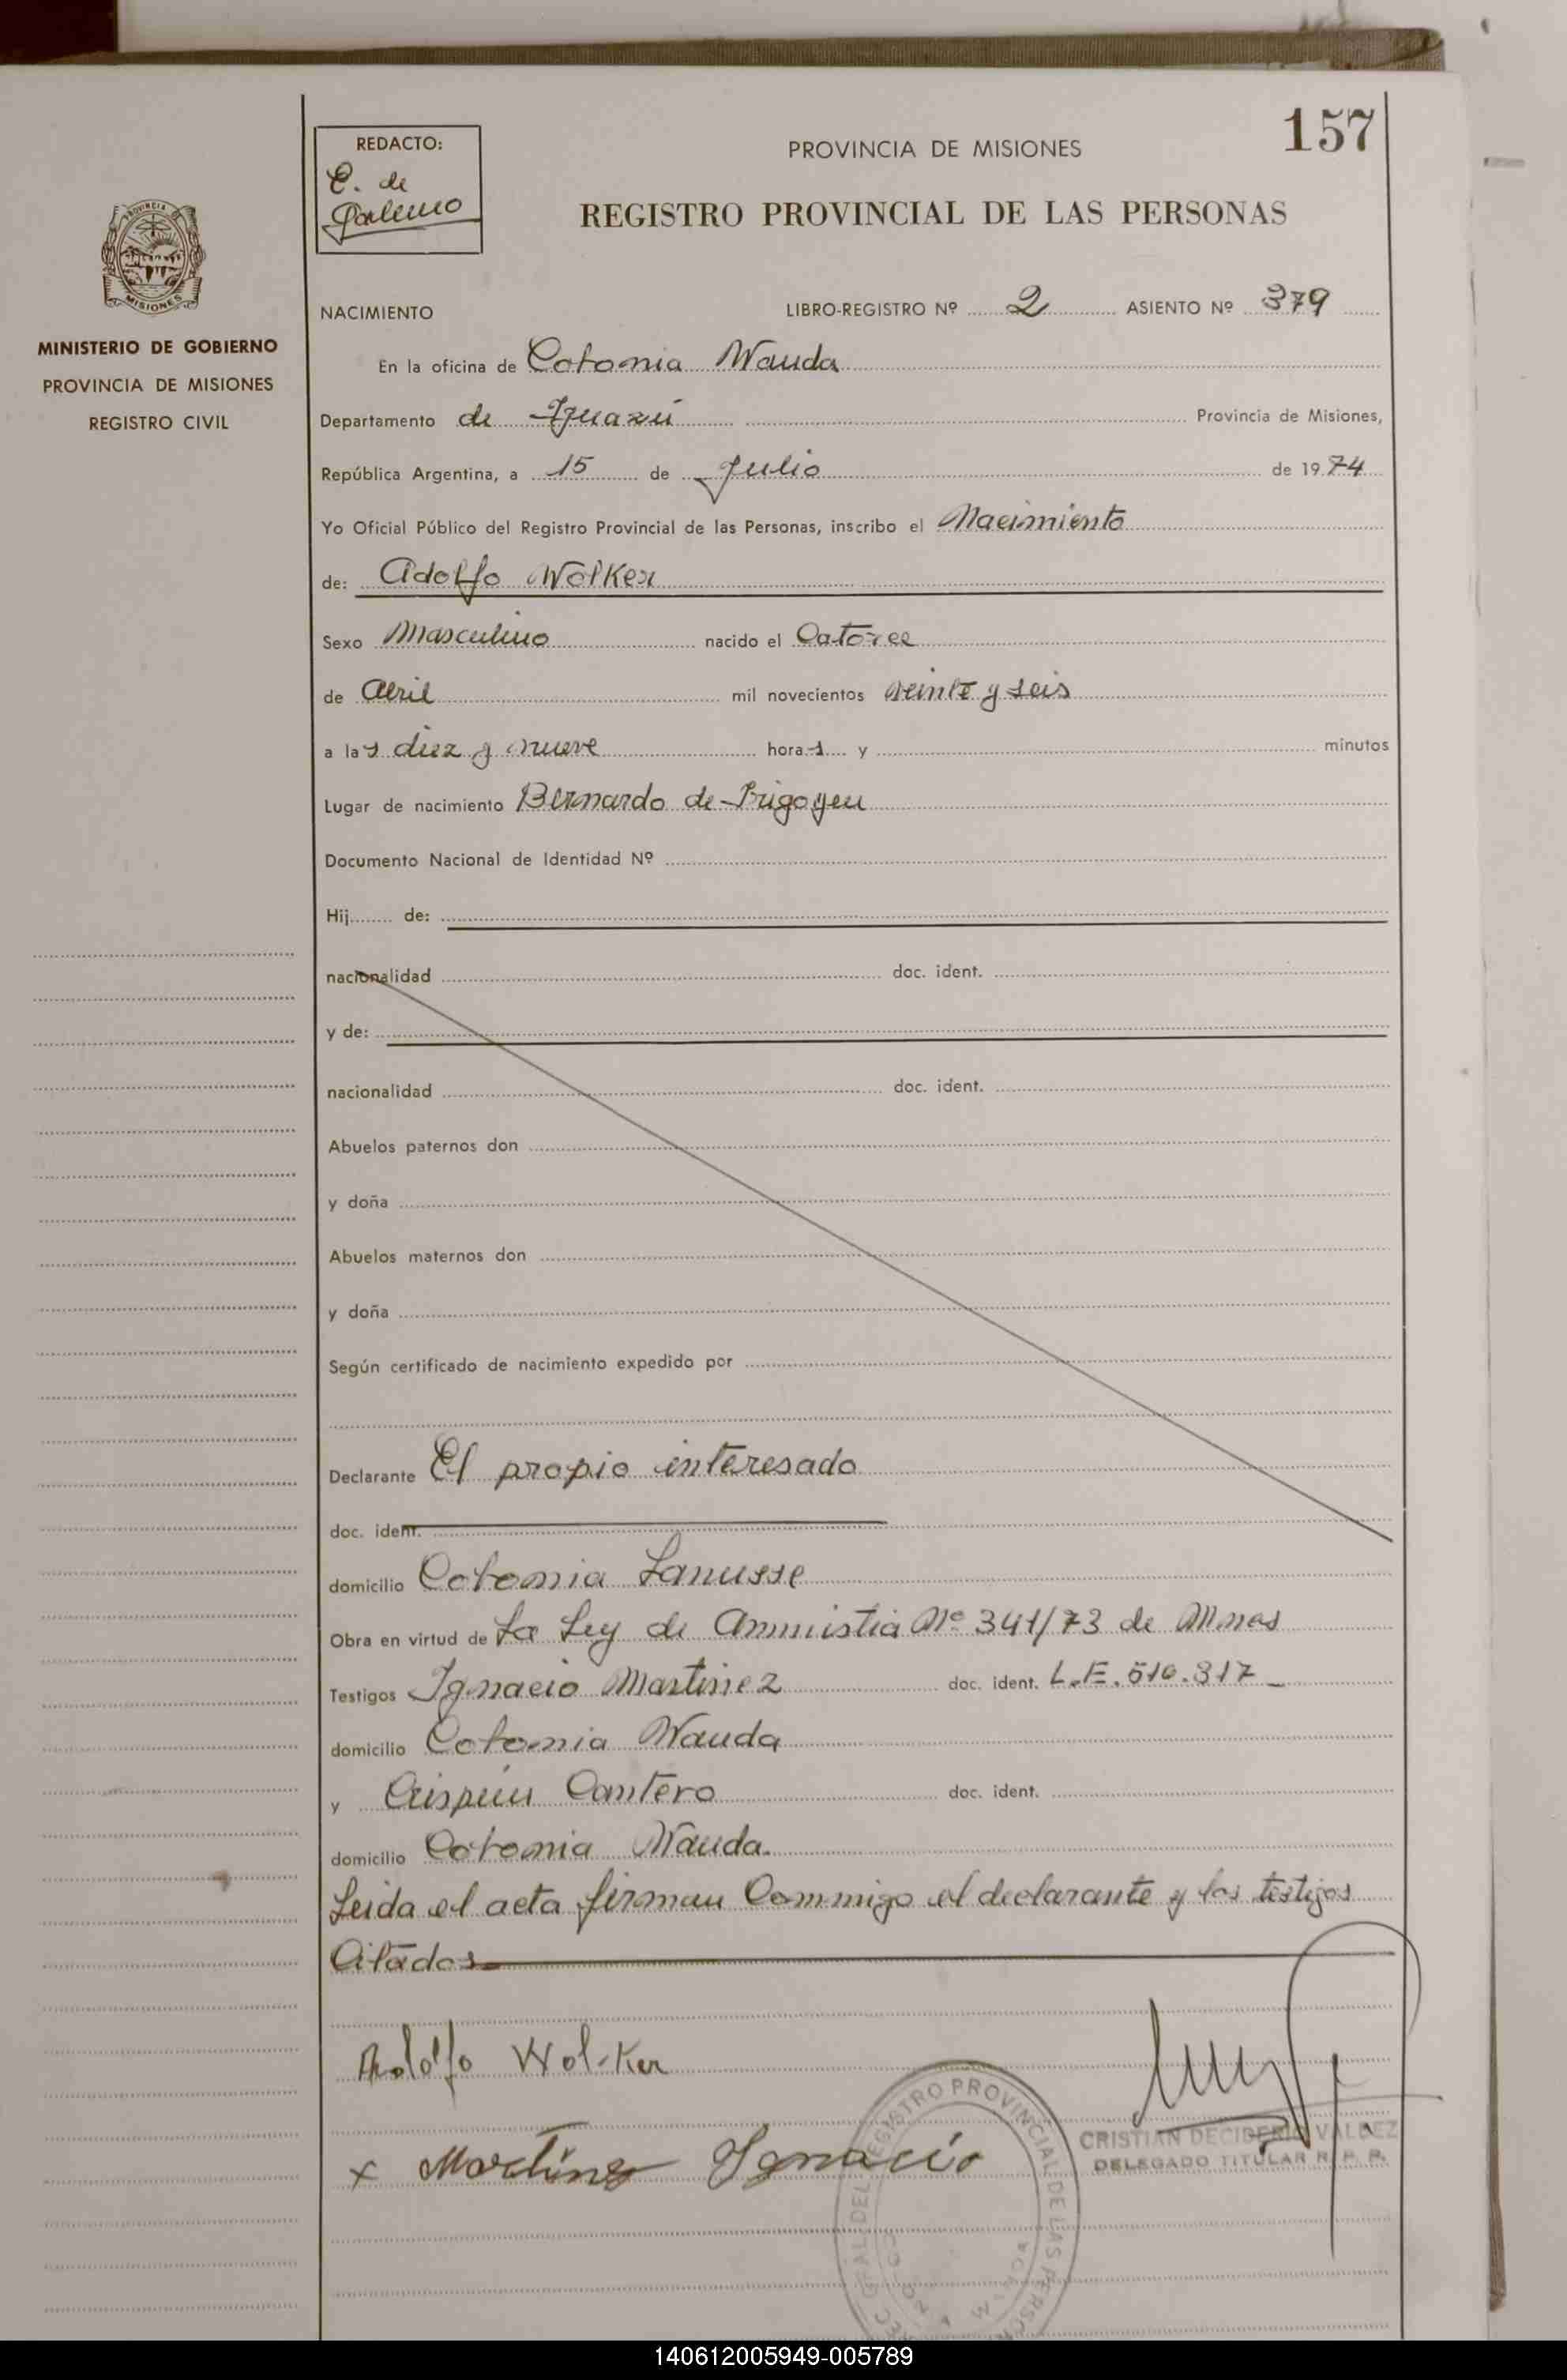 157
REDACTO:
C. de
Galeano
PROVINCIA DE MISIONES
REGISTRO PROVINCIAL DE LAS PERSONAS
MISIONES
MINISTERIO DE GOBIERNO
PROVINCIA DE MISIONES
REGISTRO CIVIL
NACIMIENTO LIBRO-REGISTRO Nº 2 ASIENTO Nº 379
En la oficina de Colonia Wanda
Departamento de Iguazú Provincia de Misiones,
República Argentina, a 15 de Julio de 1974
Yo Oficial Público del Registro Provincial de las Personas, inscribo el Nacimiento
de: Adolfo Wolker
Sexo Masculino nacido el Catorce
de Abril mil novecientos veinte y seis
a las diez y nueve horas y minutos
Lugar de nacimiento Bernardo de Irigoyen
Documento Nacional de Identidad Nº
Hij de:
nacionalidad doc. ident.
y de:
nacionalidad doc. ident.
Abuelos paternos don
y doña
Abuelos maternos don
y doña
Según certificado de nacimiento expedido por
Declarante El propio interesado
doc. ident.
domicilio Colonia Lanusse
Obra en virtud de La Ley de Amnistia Nº 341/73 de Mnes
Testigos Ignacio Martinez doc. ident. L.E. 510.317
domicilio Colonia Wanda
y Crispín Cantero doc. ident.
domicilio Colonia Wanda.
Leida el acta firman Conmigo el declarante y los testigos
Citados
Adolfo Wolker
x Martínez Ignacio
CRISTIAN DECIDERIO VALDEZ
DELEGADO TITULAR R. P. P.
GRAL. DEL REGISTRO PROVINCIAL DE LAS PERSO
140612005949-005789